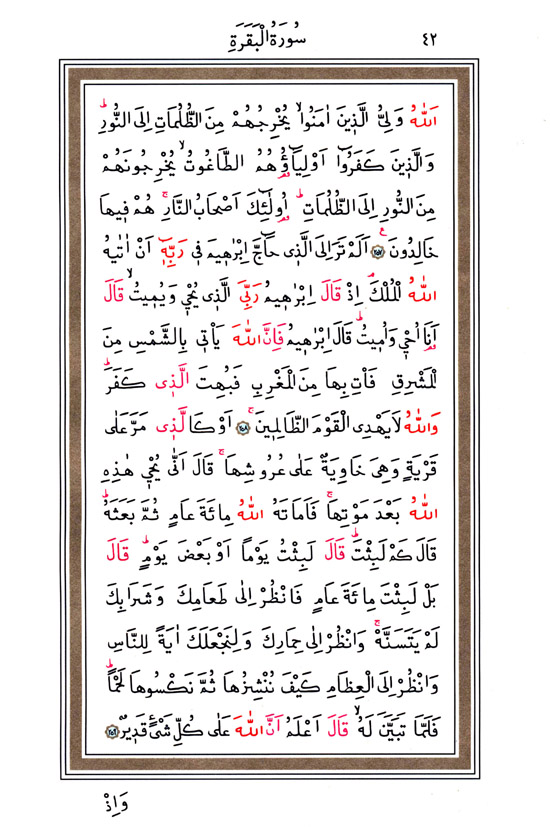 سُورَةُ الْبَقَرَةِ ٤٢
اَللّٰهُ وَلِيُّ الَّذ۪ينَ اٰمَنُواۙ يُخْرِجُهُمْ مِنَ الظُّلُمَاتِ اِلَى النُّورِۜ
وَالَّذ۪ينَ كَفَرُٓوا اَوْلِيَٓاؤُ۬هُمُ الطَّاغُوتُۙ يُخْرِجُونَهُمْ
مِنَ النُّورِ اِلَى الظُّلُمَاتِۜ اُو۬لٰٓئِكَ اَصْحَابُ النَّارِۚ هُمْ ف۪يهَا
خَالِدُونَ۟ ﴿٢٥٧﴾ اَلَمْ تَرَ اِلَى الَّذ۪ي حَٓاجَّ اِبْرٰه۪يمَ ف۪ي رَبِّه۪ٓ اَنْ اٰتٰيهُ
اللّٰهُ الْمُلْكَۢ اِذْ قَالَ اِبْرٰه۪يمُ رَبِّيَ الَّذ۪ي يُحْي۪ وَيُم۪يتُۙ قَالَ
اَنَا۬ اُحْي۪ وَاُم۪يتُۜ قَالَ اِبْرٰه۪يمُ فَاِنَّ اللّٰهَ يَأْت۪ي بِالشَّمْسِ مِنَ
الْمَشْرِقِ فَأْتِ بِهَا مِنَ الْمَغْرِبِ فَبُهِتَ الَّذ۪ي كَفَرَۜ
وَاللّٰهُ لَا يَهْدِي الْقَوْمَ الظَّالِم۪ينَۚ ﴿٢٥٨﴾ اَوْ كَالَّذ۪ي مَرَّ عَلٰى
قَرْيَةٍ وَهِيَ خَاوِيَةٌ عَلٰى عُرُوشِهَاۚ قَالَ اَنّٰى يُحْي۪ هٰذِهِ
اللّٰهُ بَعْدَ مَوْتِهَاۚ فَاَمَاتَهُ اللّٰهُ مِائَةَ عَامٍ ثُمَّ بَعَثَهُۜ
قَالَ كَمْ لَبِثْتَۜ قَالَ لَبِثْتُ يَوْمًا اَوْ بَعْضَ يَوْمٍۜ قَالَ
بَلْ لَبِثْتَ مِائَةَ عَامٍ فَانْظُرْ اِلٰى طَعَامِكَ وَشَرَابِكَ
لَمْ يَتَسَنَّهْۚ وَانْظُرْ اِلٰى حِمَارِكَ وَلِنَجْعَلَكَ اٰيَةً لِلنَّاسِ
وَانْظُرْ اِلَى الْعِظَامِ كَيْفَ نُنْشِزُهَا ثُمَّ نَكْسُوهَا لَحْمًاۜ
فَلَمَّا تَبَيَّنَ لَهُۙ قَالَ اَعْلَمُ اَنَّ اللّٰهَ عَلٰى كُلِّ شَيْءٍ قَد۪يرٌ ﴿٢٥٩﴾
وَاِذْ